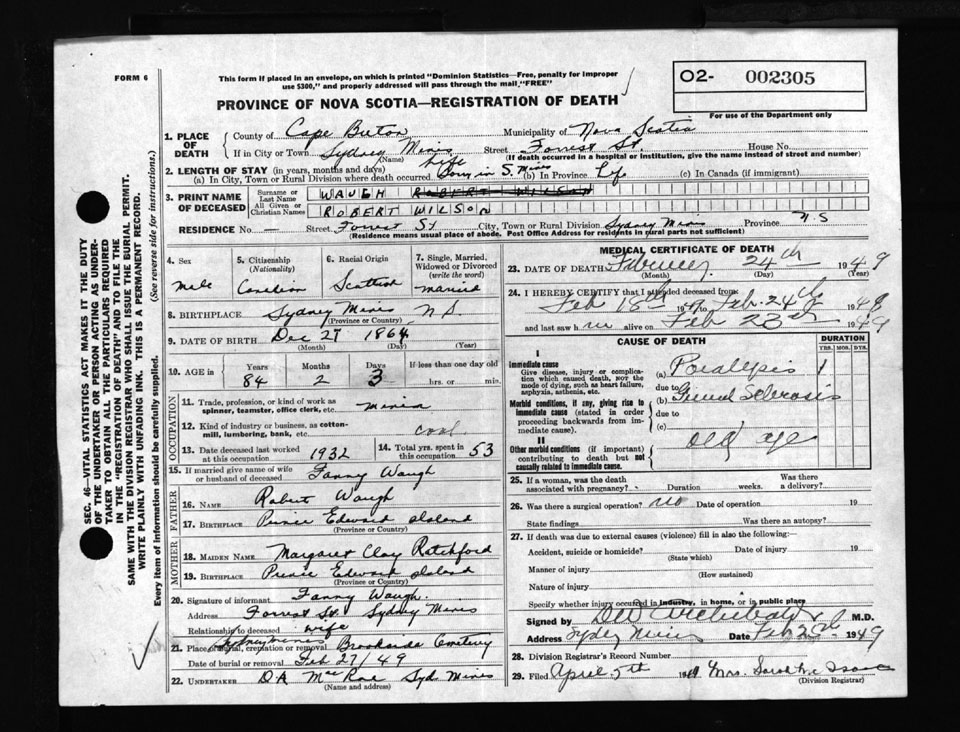 FORM 6
This form if placed in an envelope, on which is printed "Dominion Statistics—Free, penalty for improper
use $300," and properly addressed will pass through the mail "FREE"
O2- 002305
For use of the Department only
PROVINCE OF NOVA SCOTIA—REGISTRATION OF DEATH
1. PLACE OF DEATH County of Cape Breton Municipality of Nova Scotia
If in City or Town Sydney Mines Street Forrest St. House No.
(Name) (If death occurred in a hospital or institution, give the name instead of street and number)
2. LENGTH OF STAY (in years, months and days) Life
(a) In City, Town or Rural Division where death occurred. Born in S. Mines (b) In Province Life (c) In Canada (if immigrant)
3. PRINT NAME OF DECEASED Surname or Last Name WAUGH ROBERT WILSON
All Given or Christian Names ROBERT WILSON
RESIDENCE No. — Street Forrest St City, Town or Rural Division Sydney Mines Province N.S
(Residence means usual place of abode. Post Office Address for residents in rural parts not sufficient)
4. Sex Male
5. Citizenship (Nationality) Canadian
6. Racial Origin Scottish
7. Single, Married, Widowed or Divorced (write the word) married
8. BIRTHPLACE Sydney Mines N S.
(Province or Country)
9. DATE OF BIRTH Dec 27 1864
(Month) (Day) (Year)
10. AGE in Years 84 Months 2 Days 3 If less than one day old
hrs. or min.
OCCUPATION
11. Trade, profession, or kind of work as spinner, teamster, office clerk, etc. Miner
12. Kind of industry or business, as cotton-mill, lumbering, bank, etc. coal
13. Date deceased last worked at this occupation 1932
14. Total yrs. spent in this occupation 53
15. If married give name of wife or husband of deceased Fanny Waugh
FATHER
16. NAME Robert Waugh
17. BIRTHPLACE Prince Edward Island
(Province or Country)
MOTHER
18. MAIDEN NAME Margaret Clay Ratchford
19. BIRTHPLACE Prince Edward Island
(Province or Country)
20. Signature of informant Fanny Waugh.
Address Forrest St. Sydney Mines
Relationship to deceased wife
21. Place of burial, cremation or removal Sydney Mines Brookside Cemetery
Date of burial or removal Feb 27/49
22. UNDERTAKER D.A. MacRae Syd. Mines
(Name and address)
MEDICAL CERTIFICATE OF DEATH
23. DATE OF DEATH February 24th 1949
(Month) (Day) (Year)
24. I HEREBY CERTIFY that I attended deceased from
Feb 18th 19 to Feb. 24th 194
and last saw h im alive on Feb 23rd 1949
CAUSE OF DEATH
DURATION
YRS. MOS. DYS.
I
Immediate cause
Give disease, injury or complication which caused death, NOT the mode of dying, such as heart failure, asphyxia, asthenia, etc.
(a) Paralysis 1
due to
Morbid conditions, if any, giving rise to immediate cause (stated in order proceeding backwards from immediate cause).
(b) Sclerosis
due to
(c)
II
Other morbid conditions (if important) contributing to death but not causally related to immediate cause.
Old age
25. If a woman, was the death associated with pregnancy? Duration weeks. Was there a delivery?
26. Was there a surgical operation? no Date of operation 19
State findings Was there an autopsy?
27. If death was due to external causes (violence) fill in also the following:—
Accident, suicide or homicide? Date of injury 19
(State which)
Manner of injury
(How sustained)
Nature of injury
Specify whether injury occurred in industry, in home, or in public place
Signed by Archibald M.D.
Address Sydney Mines Date Feb 25th 1949
28. Division Registrar's Record Number
29. Filed April 5th 1949 Mrs. Sarah Mc Isaac
(Division Registrar)
SEC. 46—VITAL STATISTICS ACT MAKES IT THE DUTY
OF THE UNDERTAKER OR PERSON ACTING AS UNDER-
TAKER TO OBTAIN ALL THE PARTICULARS REQUIRED
IN THE "REGISTRATION OF DEATH" AND TO FILE THE
SAME WITH THE DIVISION REGISTRAR WHO SHALL ISSUE THE BURIAL PERMIT.
WRITE PLAINLY WITH UNFADING INK. THIS IS A PERMANENT RECORD.
Every item of information should be carefully supplied. (See reverse side for instructions.)